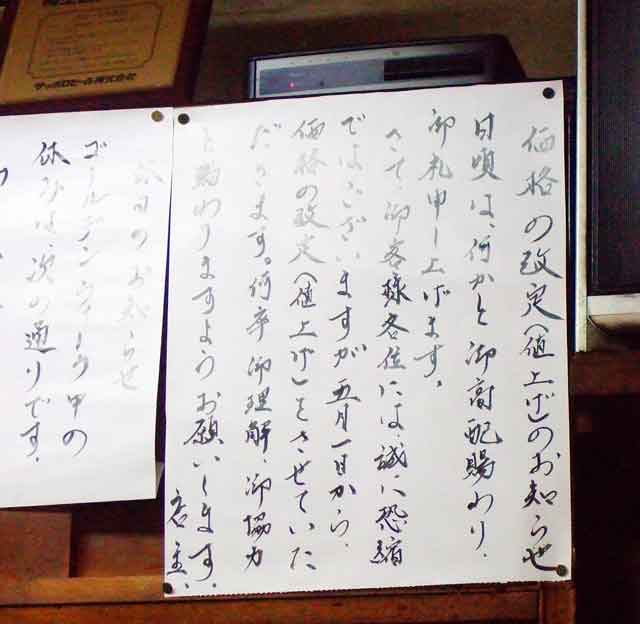 価格の改定(値上げ)のお知らせ
日頃は、何かと御高配賜わり、
御礼申し上げます。
さて、御客様各位には、誠に恐縮
ではございますが五月一日から、
価格の改定(値上げ)をさせていた
だきます。何卒御理解、御協力
を賜わりますようお願いします。
店主、
休日のお知らせ
ゴールデンウィーク中の
休みは、次の通りです。
サッポロビール株式会社